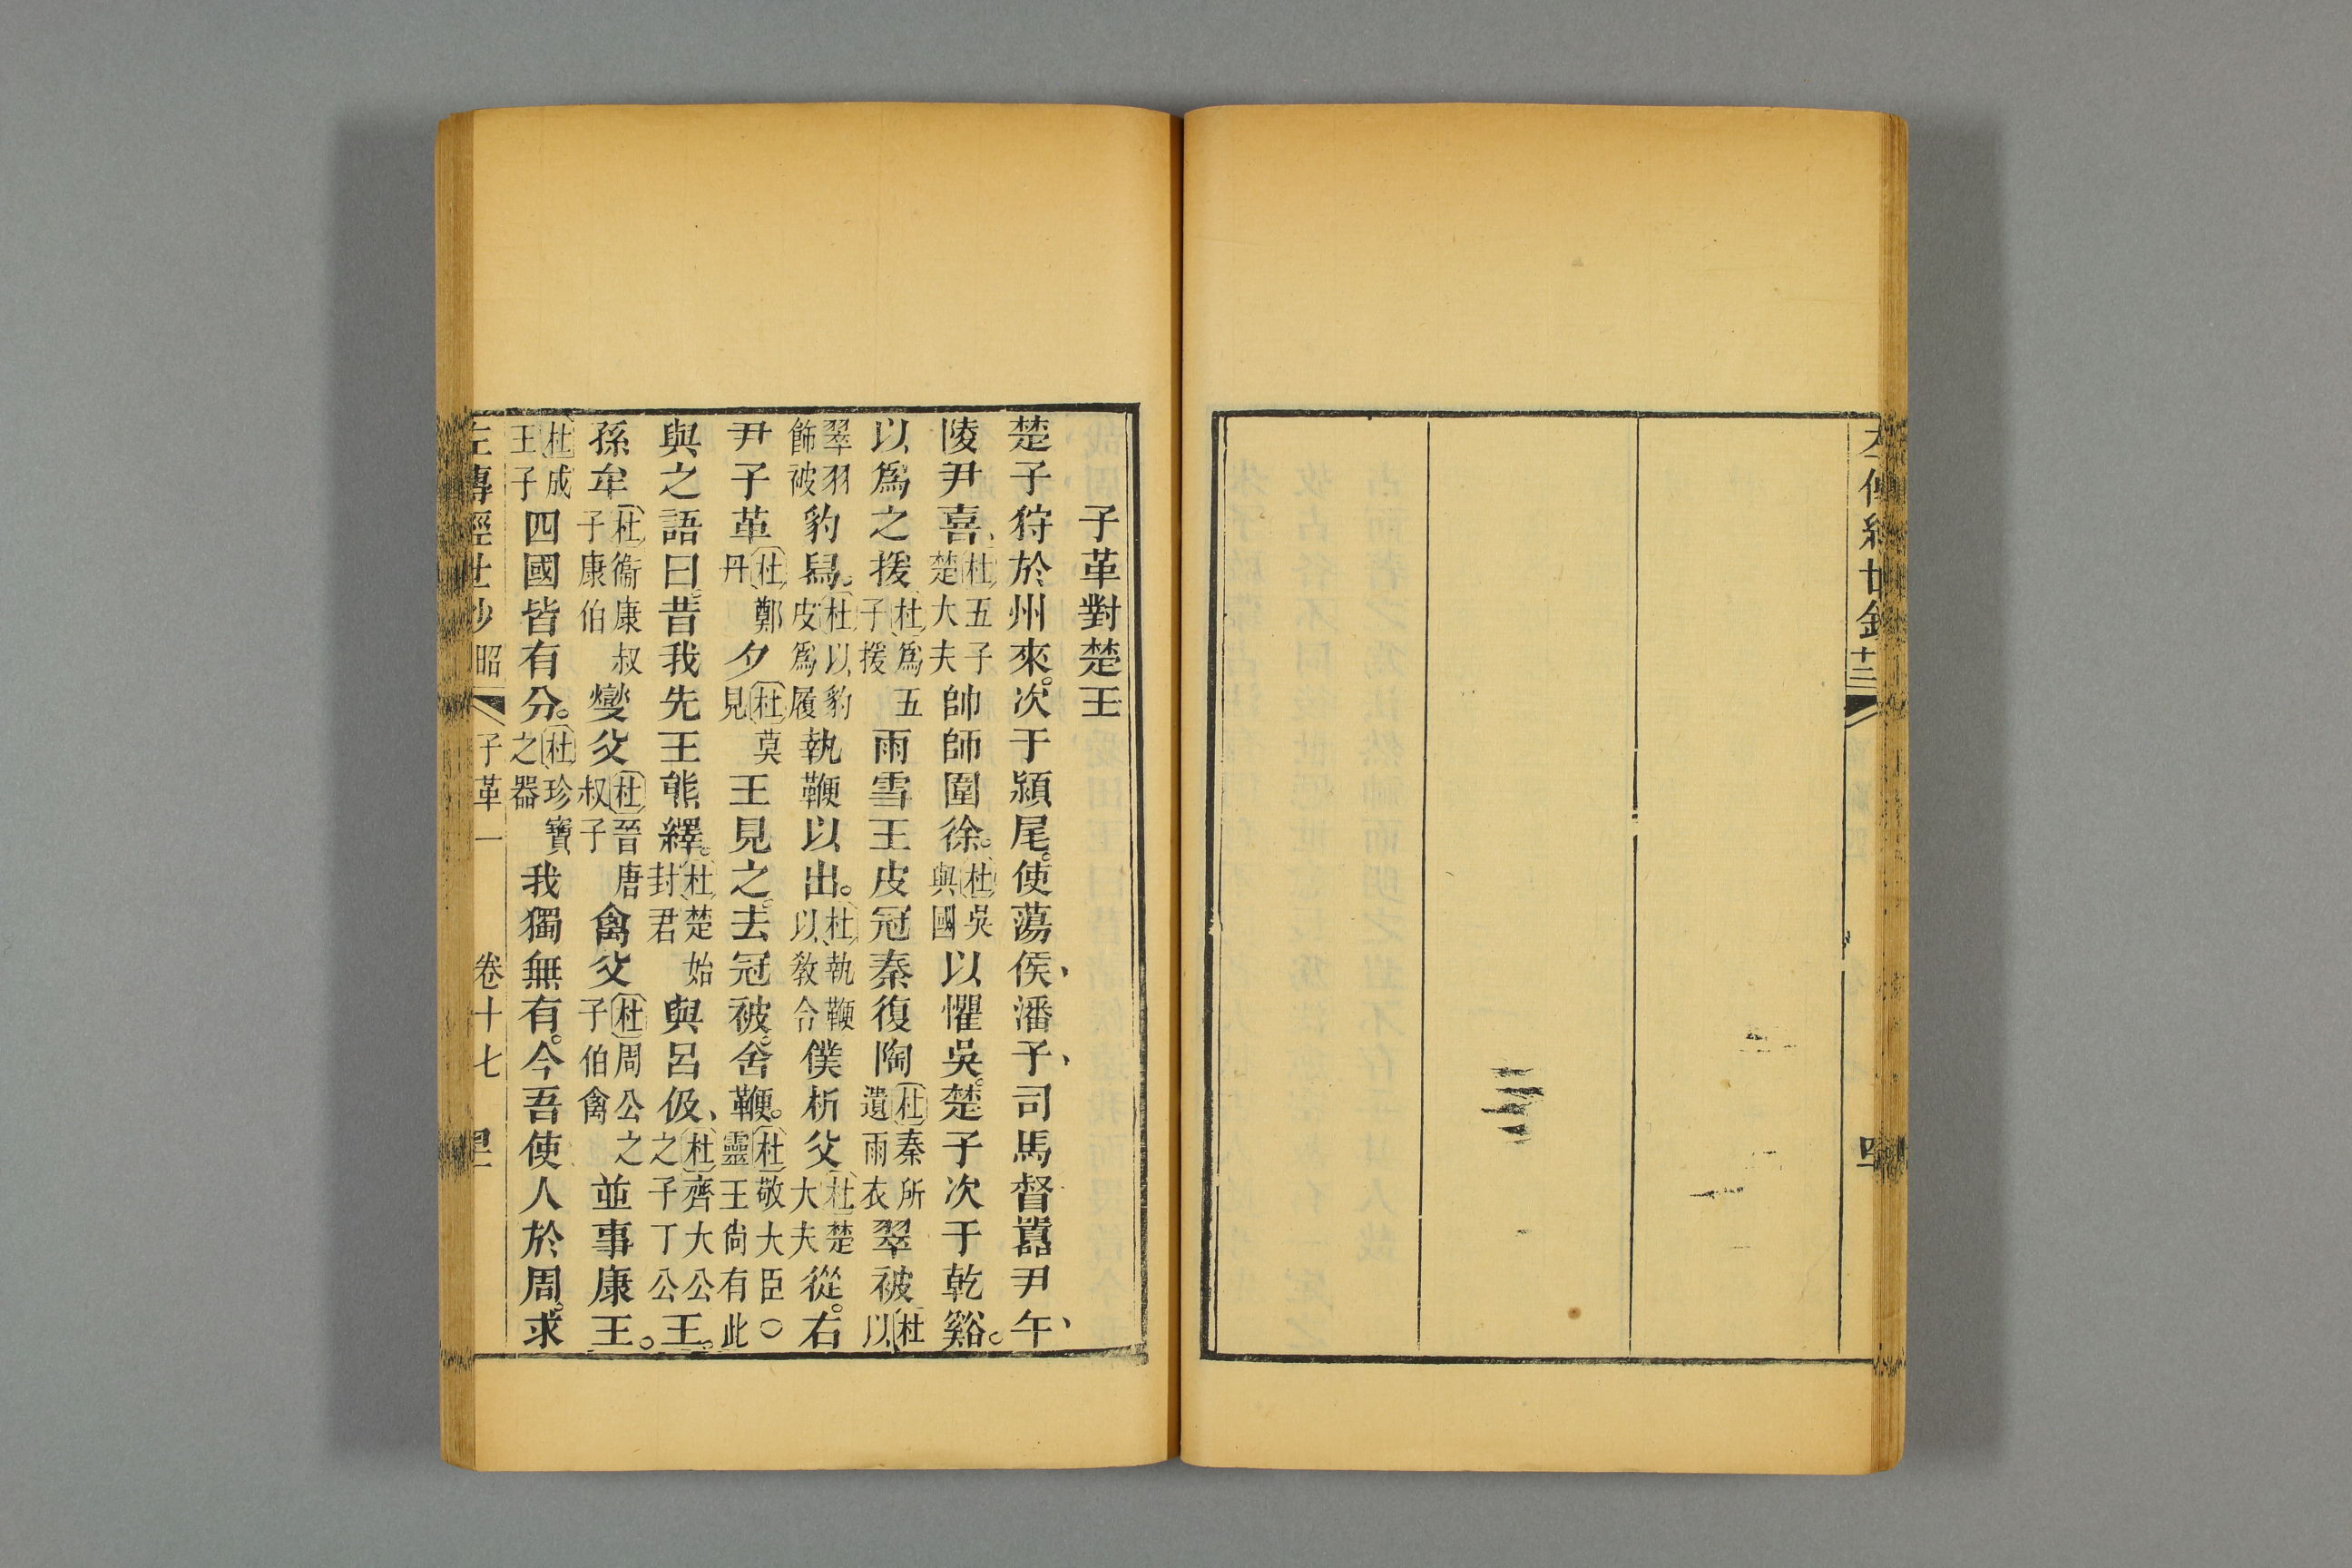 子革對楚王
楚子狩於州來。次于潁尾。使蕩侯、潘子、司馬督囂尹午、
陵尹喜、杜五子楚大夫帥師圍徐。杜吳與國以懼吳。楚子次于乾谿。
以爲之援杜爲五子援雨雪王皮冠秦復陶杜秦所遺雨衣翠被杜以
翠羽飾被豹舄。杜以豹皮爲履執鞭以出。杜執鞭以敎令僕析父杜楚大夫從。右
尹子革杜鄭丹夕杜莫見王見之。去冠被。舍鞭。杜敬大臣○靈王尙有此
與之語曰。昔我先王熊繹。杜楚始封君與呂伋、杜齊大公之子丁公王。
孫牟杜衞康叔子康伯燮父杜晉唐叔子禽父杜周公之子伯禽並事康王。
杜成王子四國皆有分。杜珍寶之器我獨無有。今吾使人於周。求
左傳經世鈔 昭 子革一 卷十七